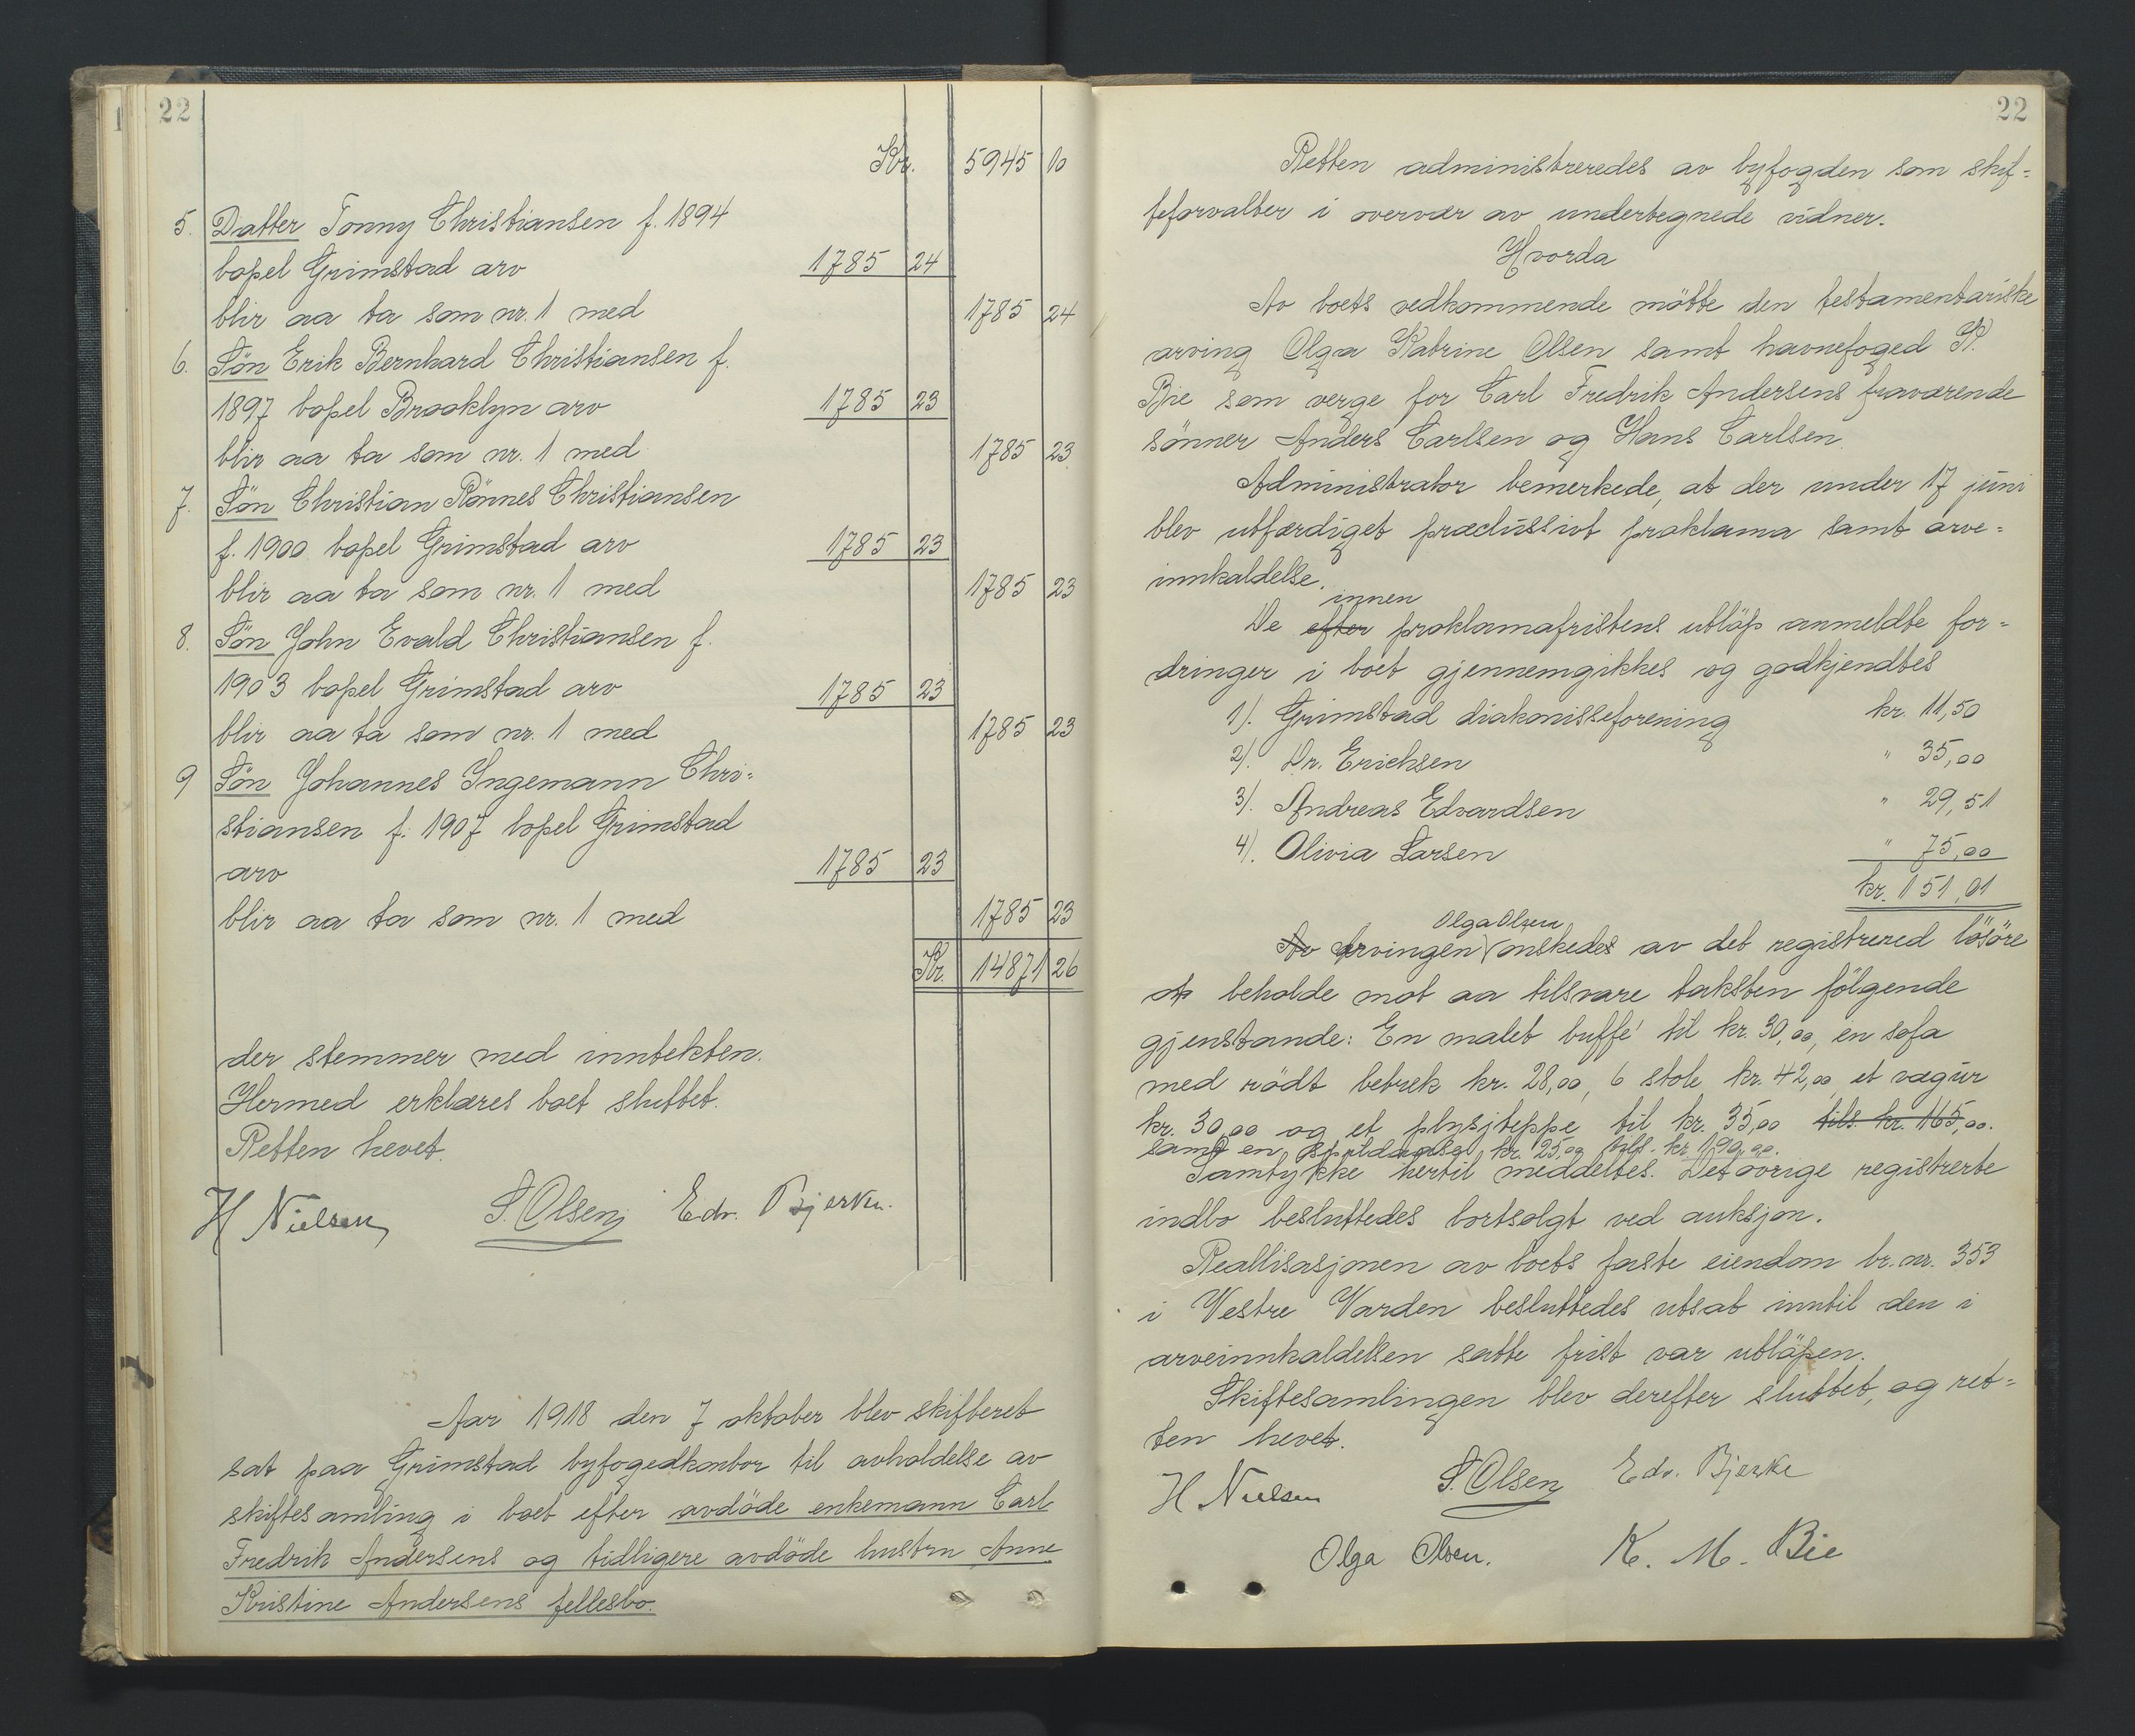 22
Kr. 5945 10
5. Datter Tonny Christiansen f. 1894
bopel Grimstad arv 1785 24
blir aa ta som nr. 1 med 1785 24
6. Sön Erik Bernhard Christiansen f.
1897 bopel Brooklyn arv 1785 23
blir aa ta som nr. 1 med 1785 23
7. Sön Christian Rönnes Christiansen
f. 1900 bopel Grimstad arv 1785 23
blir aa ta som nr. 1 med 1785 23
8. Sön John Evald Christiansen f.
1903 bopel Grimstad arv 1785 23
blir aa ta som nr. 1 med 1785 23
9 Sön Johannes Ingemann Chri=
stiansen f. 1907 bopel Grimstad
arv 1785 23
blir aa ta som nr. 1 med 1785 23
Kr. 14871 26
der stemmer med inntekten.
Hermed erklæres boet sluttet.
Retten hevet.
H Nielsen S. Olsen Edv. Bjerke.
Aar 1918 den 7 oktober blev skifteret
sat paa Grimstad byfogedkontor til avholdelse av
skiftesamling i boet efter avdöde enkemann Carl
Fredrik Andersens og tidligere avdöde hustru Anne
Kristine Andersens fellesbo.
22
Retten administreredes av byfogden som skif=
teforvalter i overvær av undertegnede vidner.
Hvorda
Av boets vedkommende mötte den testamentariske
arving Olga Katrine Olsen samt havnefoged K.
Bie som verge for Carl Fredrik Andersens fraværende
sönner Anders Carlsen og Hans Carlsen.
Administrator bemerkede, at der under 17 juni
blev utfærdiget præclusivt proklama samt arve=
innkaldelse.
innen
De efter proklamafristens utlöp anmeldte for=
dringer i boet gjennemgikkes og godkjendtes
1). Grimstad diakonisseforening kr. 11,50
2). Dr. Erichsen " 35,00
3). Andreas Edvardsen " 29,51
4). Olivia Larsen " 75,00
kr. 151,01
Olga Olsen
Av arvingen önskedes av det registrered lösöre
at beholde mot aa tilsvare taksten fölgende
gjenstande: En malet buffé til kr. 30,00, en sofa
med rödt betrek kr. 28,00, 6 stole kr. 42,00, et vægur
kr. 30,00 og et plysjteppe til kr. 35,00 tils. kr. 165,00.
samt en spildaase kr. 25,00 tils. kr 190,00.
Samtykke hertil meddeltes. Det övrige registrerte
indbo besluttedes bortsolgt ved auksjon.
Reallisasjonen av boets faste eiendom br. nr. 353
i Vestre Varden besluttedes utsat inntil den i
arveinnkaldelsen satte frist var utlöpen.
Skiftesamlingen blev derefter sluttet, og ret=
ten hevet.
H Nielsen S. Olsen Edv. Bjerke
Olga Olsen. K. M. Bie